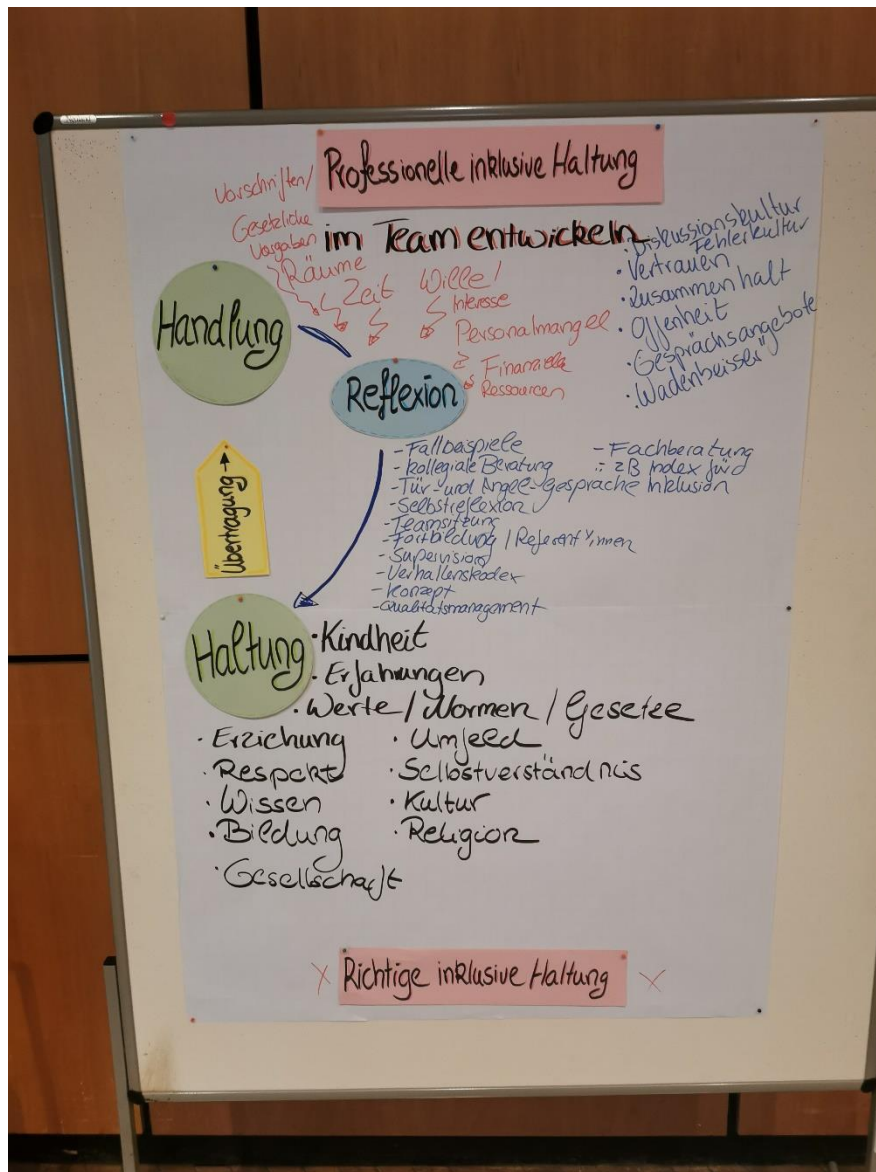 Professionelle inklusive Haltung
im Team entwickeln
Vorschriften/
Gesetzliche
Vorgaben
Räume
Zeit
Wille!
Interesse
Personalmangel
Finanzielle
Ressourcen
• Diskussionskultur
Fehlerkultur
• Vertrauen
• Zusammenhalt
• Offenheit
• Gesprächsangebote
• "Wadenbeisser"
Handlung
Reflexion
- Fallbeispiele
- kollegiale Beratung
- Tür- und Angel-Gespräche
- Selbstreflexion
- Teamsitzung
- Fortbildung / Referent*innen
- Supervision
- Verhaltenskodex
- Konzept
- Qualitätsmanagement
- Fachberatung
zB Index für
Inklusion
Übertragung →
Haltung
• Kindheit
• Erfahrungen
• Werte / Normen / Gesetze
• Erziehung
• Respekt
• Wissen
• Bildung
• Gesellschaft
• Umfeld
• Selbstverständnis
• Kultur
• Religion
x Richtige inklusive Haltung x